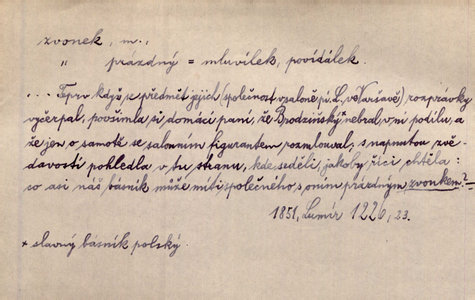 zvonek, m.,
„ prázdný = mluvílek, povídálek.
... Teprv když se předmět jejich (společnost v saloně pí. L. ve Varšavě) rozprávky
vyčerpal, povšimla si domácí paní, že Brodziński × nebral v ní podílu a
že jen o samotě se salonním figurantem rozmlouval; s napnutou zvě-
davostí pohledla v tu stranu, kde seděli, jakoby říci chtěla:
co asi náš básník může míti společného s oním prázdným zvonkem? —
1851, Lumír 1226, 23.
× slavný básník polský.